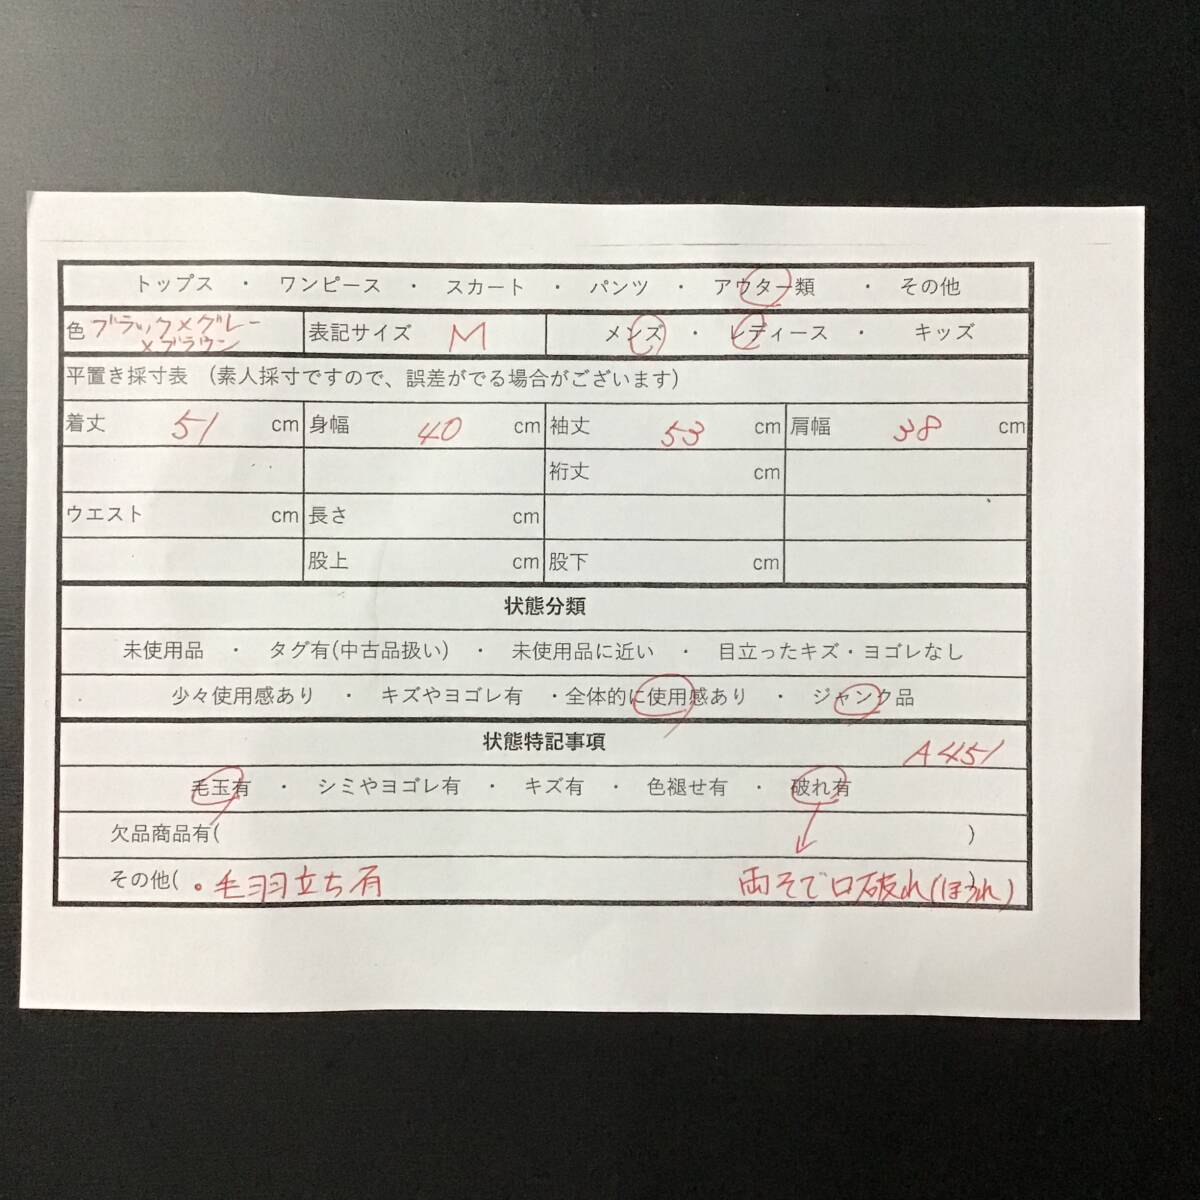 トップス ・ ワンピース ・ スカート ・ パンツ ・ アウター類 ・ その他
色 ブラック×グレー×ブラウン 表記サイズ M メンズ ・ レディース ・ キッズ
平置き採寸表 (素人採寸ですので、誤差がでる場合がございます)
着丈 51 cm 身幅 40 cm 袖丈 53 cm 肩幅 38 cm
裄丈 cm
ウエスト cm 長さ cm
股上 cm 股下 cm
状態分類
未使用品 ・ タグ有(中古品扱い) ・ 未使用品に近い ・ 目立ったキズ・ヨゴレなし
少々使用感あり ・ キズやヨゴレ有 ・全体的に使用感あり ・ ジャンク品
状態特記事項 A451
毛玉有 ・ シミやヨゴレ有 ・ キズ有 ・ 色褪せ有 ・ 破れ有
欠品商品有( )
その他( ・毛羽立ち有 両そで口破れ(ほつれ)